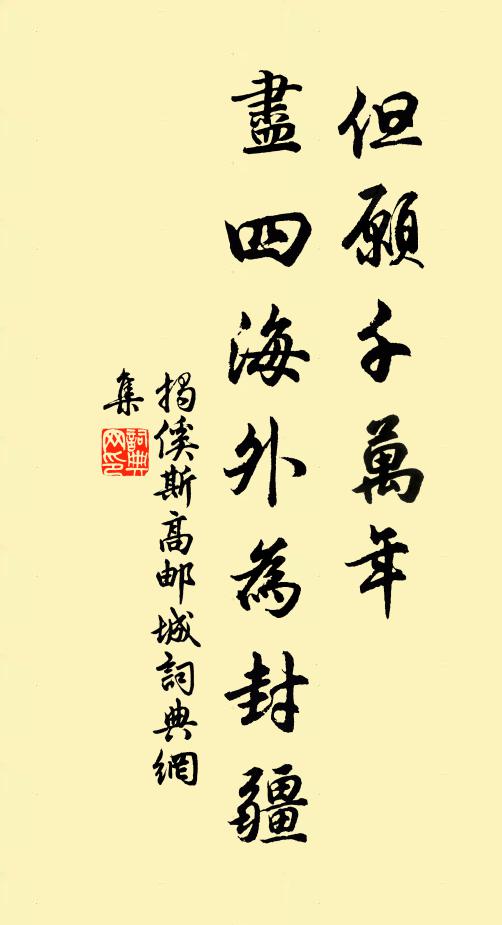 但願千萬年
盡四海外為封疆
揭傒斯高邮城詞典網
集
詞典网印